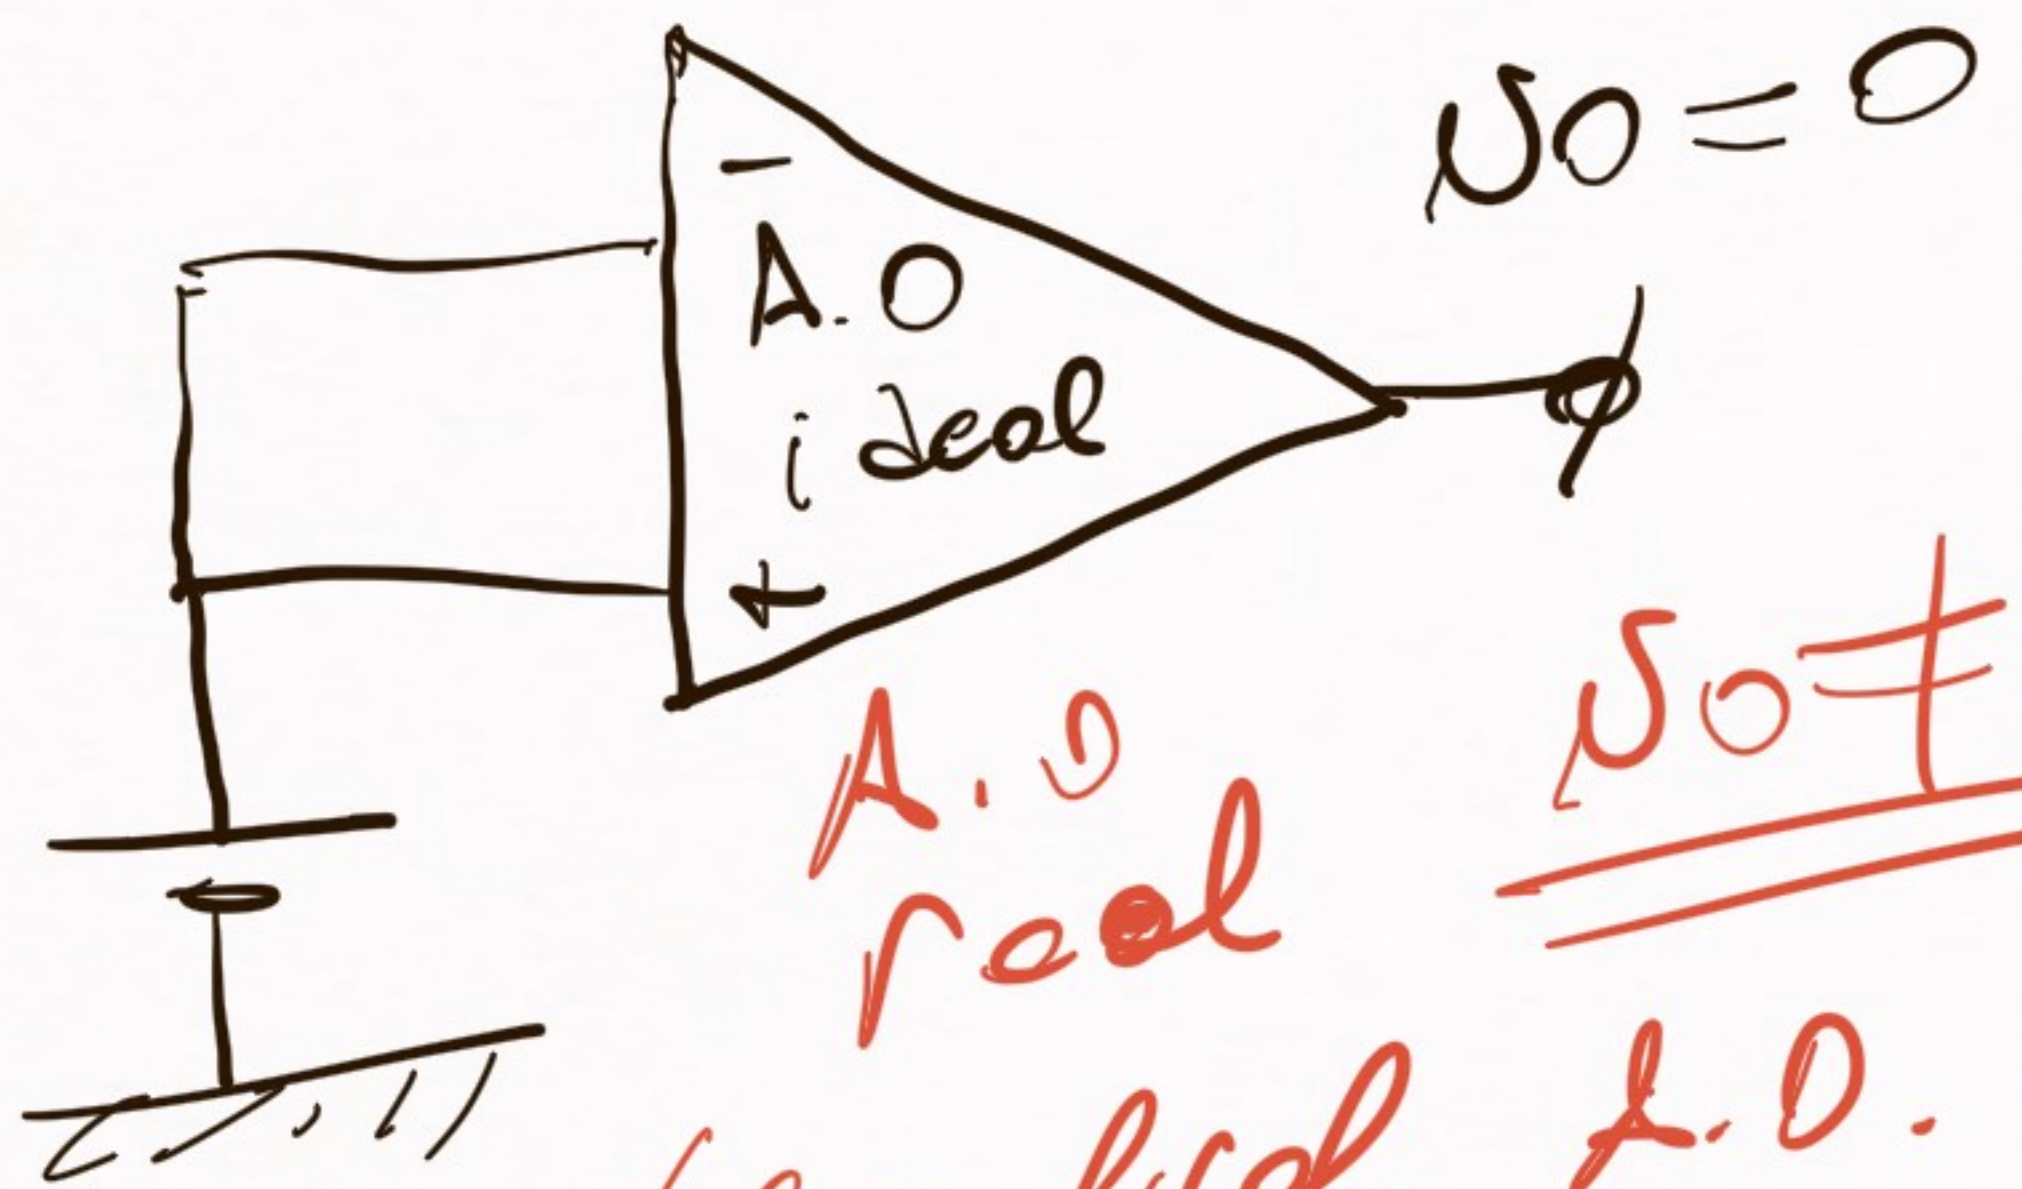 vo = 0
-
A.O
ideal
+
vo ≠
A.O
real
A.O.